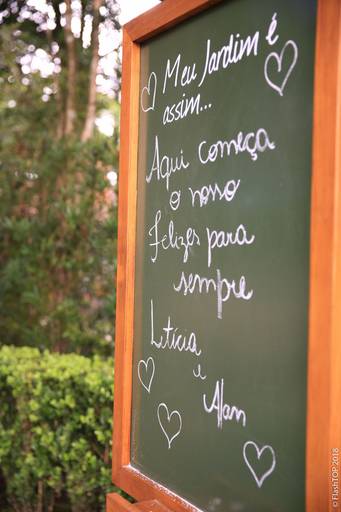 Meu Jardim é
assim...
Aqui começa
o nosso
Felizes para
sempre
Letícia
e
Alan
© FlashTOP 2018